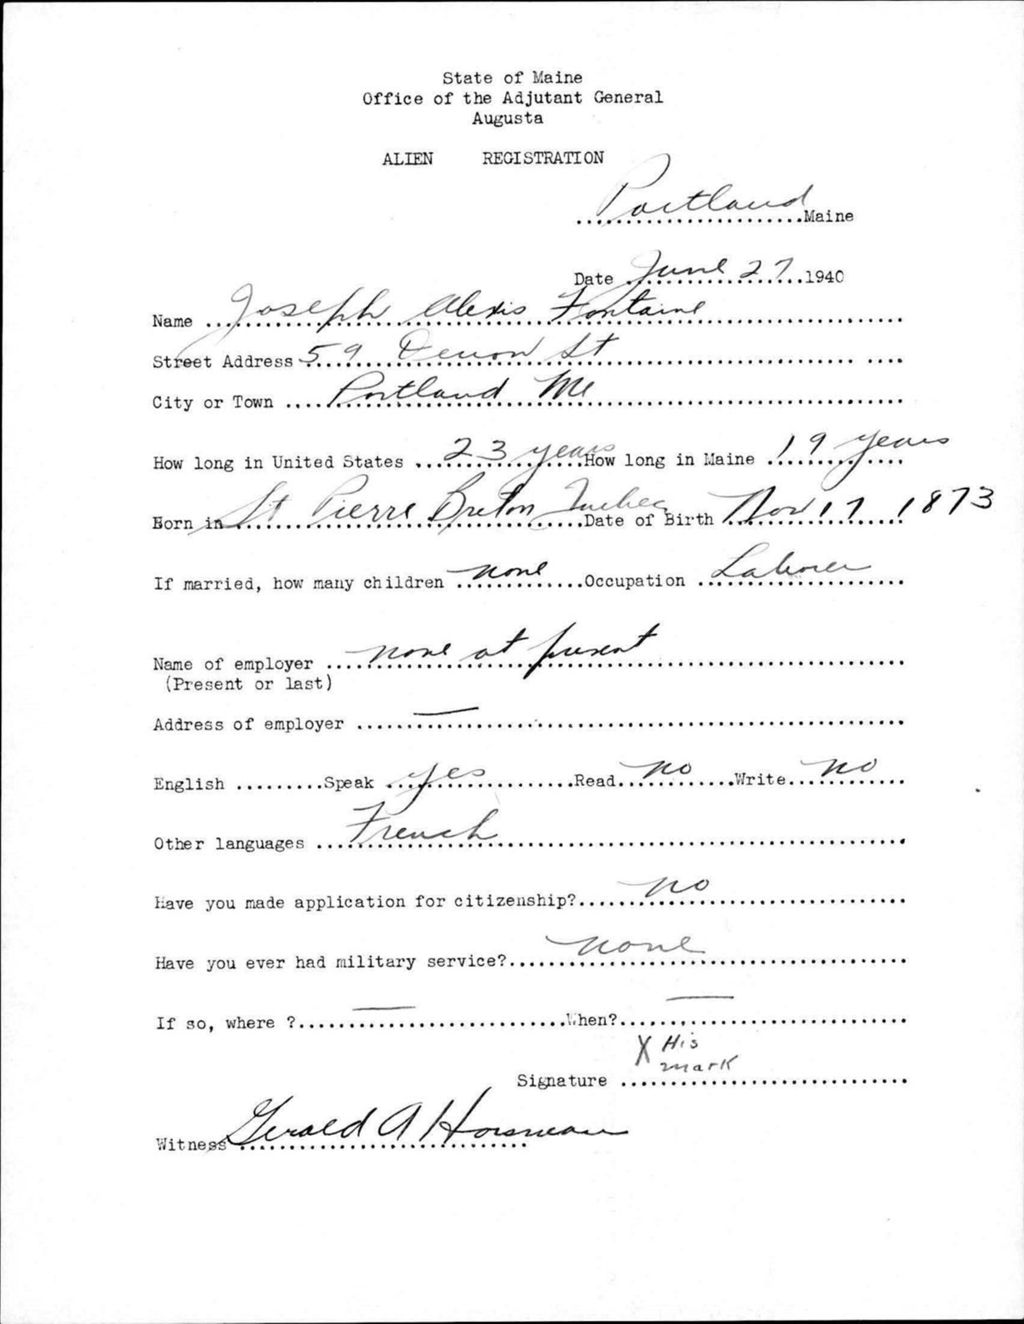 State of Maine
Office of the Adjutant General
Augusta
ALIEN REGISTRATION
Portland Maine
Date June 27 1940
Name Joseph Alexis Fontaine
Street Address 59 Devon St
City or Town Portland Me
How long in United States 23 years How long in Maine 19 years
Born in St Pierre Breton Quebec Date of Birth Nov 17 1873
If married, how many children none Occupation Laborer
Name of employer none at present
(Present or last)
Address of employer —
English Speak yes Read no Write no
Other languages French
Have you made application for citizenship? no
Have you ever had military service? none
If so, where ? — When? —
X His
mark
Signature
Witness Gerald A Horsman